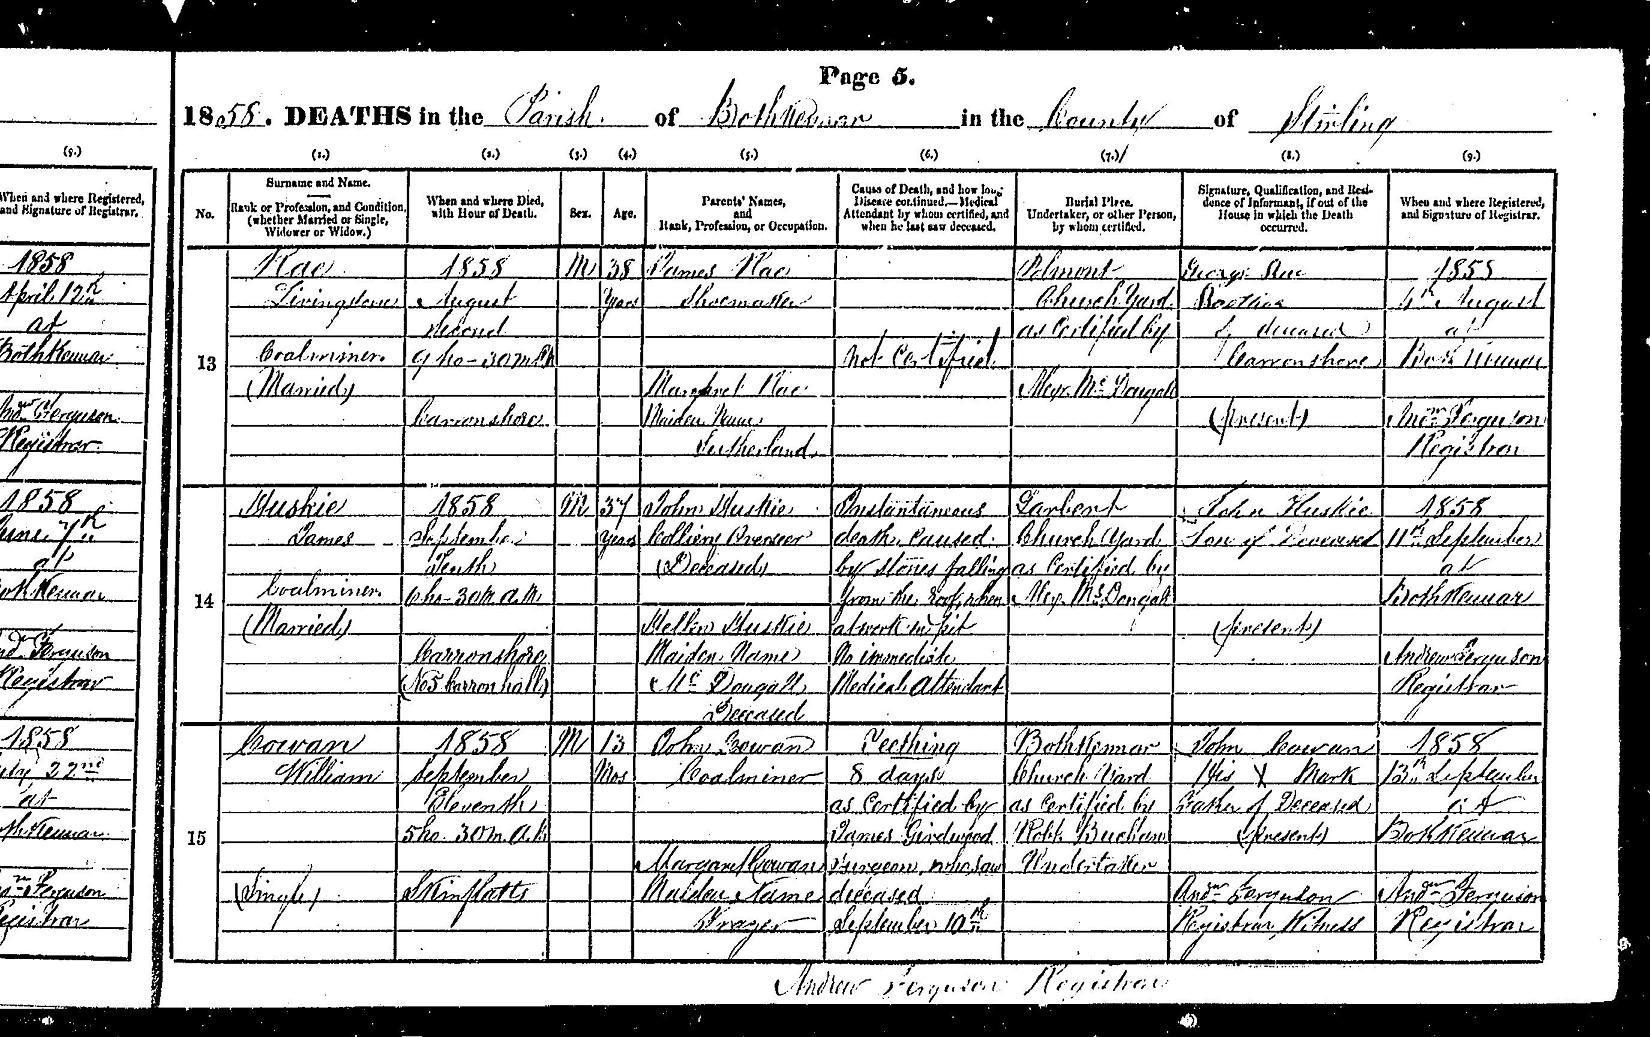 Page 5.
1858. DEATHS in the Parish of Bothkennar in the County of Stirling
(9.)
When and where Registered,
and Signature of Registrar.
1858
April 12th
at
Bothkennar
Andw Ferguson
Registrar
1858
June 7th
at
Bothkennar
And. Ferguson
Registrar
1858
July 22nd
at
Bothkennar
Andw Ferguson
Registrar
(1.) (2.) (3.) (4.) (5.) (6.) (7.) (8.) (9.)
No.
Surname and Name.
Rank or Profession, and Condition,
(whether Married or Single,
Widower or Widow.)
When and where Died,
with Hour of Death.
Sex.
Age.
Parents' Names,
and
Rank, Profession, or Occupation.
Cause of Death, and how long
Disease continued,—Medical
Attendant by whom certified, and
when he last saw deceased.
Burial Place.
Undertaker, or other Person,
by whom certified.
Signature, Qualification, and Resi-
dence of Informant, if out of the
House in which the Death
occurred.
When and where Registered,
and Signature of Registrar.
13
Rae
Livingstone
Coalminer
(Married)
1858
August
Second
9 ho- 30 m
Carronshore
M
38
Years
James Rae
Shoemaker
Margaret Rae
Maiden Name
Sutherland
Not Certified
Polmont
Church Yard
as Certified by
Alexr. McDougall
George Rae
Brother
of deceased
Carronshore
(present)
1858
4th August
at
Bothkennar
Andw Ferguson
Registrar
14
Huskie
James
Coalminer
(Married)
1858
September
Tenth
6 ho- 30 m A.M.
Carronshore
(No 5 Carron hall)
M
37
Years
John Huskie
Colliery Overseer
(Deceased)
Hellen Huskie
Maiden Name
McDougall
Deceased
Instantaneous
death, caused
by stones falling
from the roof, when
at work in pit
No immediate
Medical Attendant
Larbert
Church Yard
as Certified by
Alexr. McDougall
John Huskie
Son of Deceased
(present)
1858
11th September
at
Bothkennar
Andrew Ferguson
Registrar
15
Cowan
William
(Single)
1858
September
Eleventh
5 ho. 30 m. A.M.
Skinflatts
M
13
Mos
John Cowan
Coalminer
Margaret Cowan
Maiden Name
Frazer
Teething
8 days
as Certified by
James Girdwood
Surgeon, who saw
deceased
September 10th
Bothkennar
Church Yard
as Certified by
Robt Buchan
Undertaker
John Cowan
His X Mark
Father of Deceased
(present)
Andw Ferguson
Registrar, Witness
1858
13th September
at
Bothkennar
Andw Ferguson
Registrar
Andrew Ferguson Registrar